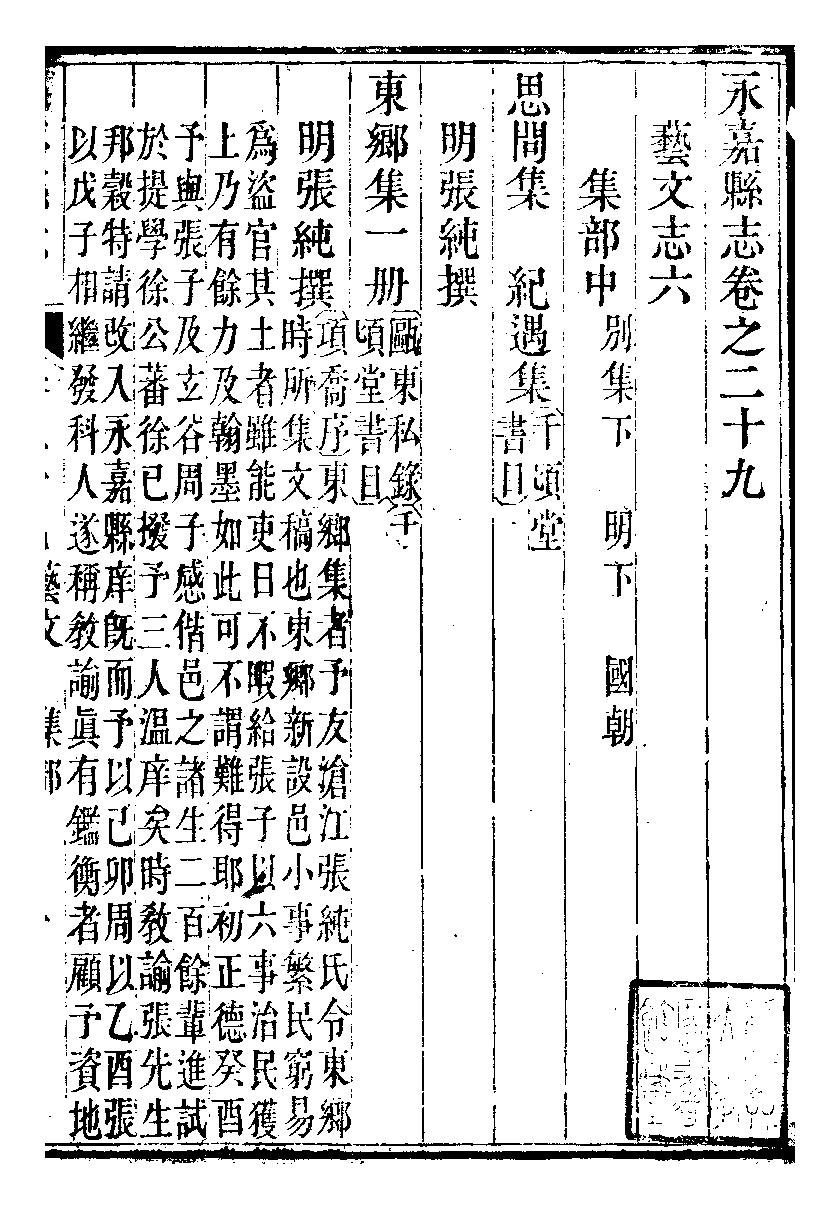 永嘉縣志卷之二十九
藝文志六
集部中 別集下 明下 國朝
思問集 紀遇集 千頃堂
書目
明張純撰
東鄉集一册 甌東私錄 千
頃堂書目
明張純撰 項喬序東鄉集者予友滄江張純氏令東鄉
時所集文稿也東鄉新設邑小事繁民窮易
爲盜官其土者雖能吏日不暇給張子以六事治民獲
上乃有餘力及翰墨如此可不謂難得耶初正德癸酉
予與張子及玄谷周子感偕邑之諸生二百餘輩進試
於提學徐公蕃徐已撥予三人溫庠矣時敎諭張先生
邦穀特請改入永嘉縣庠旣而予以己卯周以乙酉張
以戊子相繼發科人遂稱敎諭眞有鑑衡者顧予資地
藝文 集部